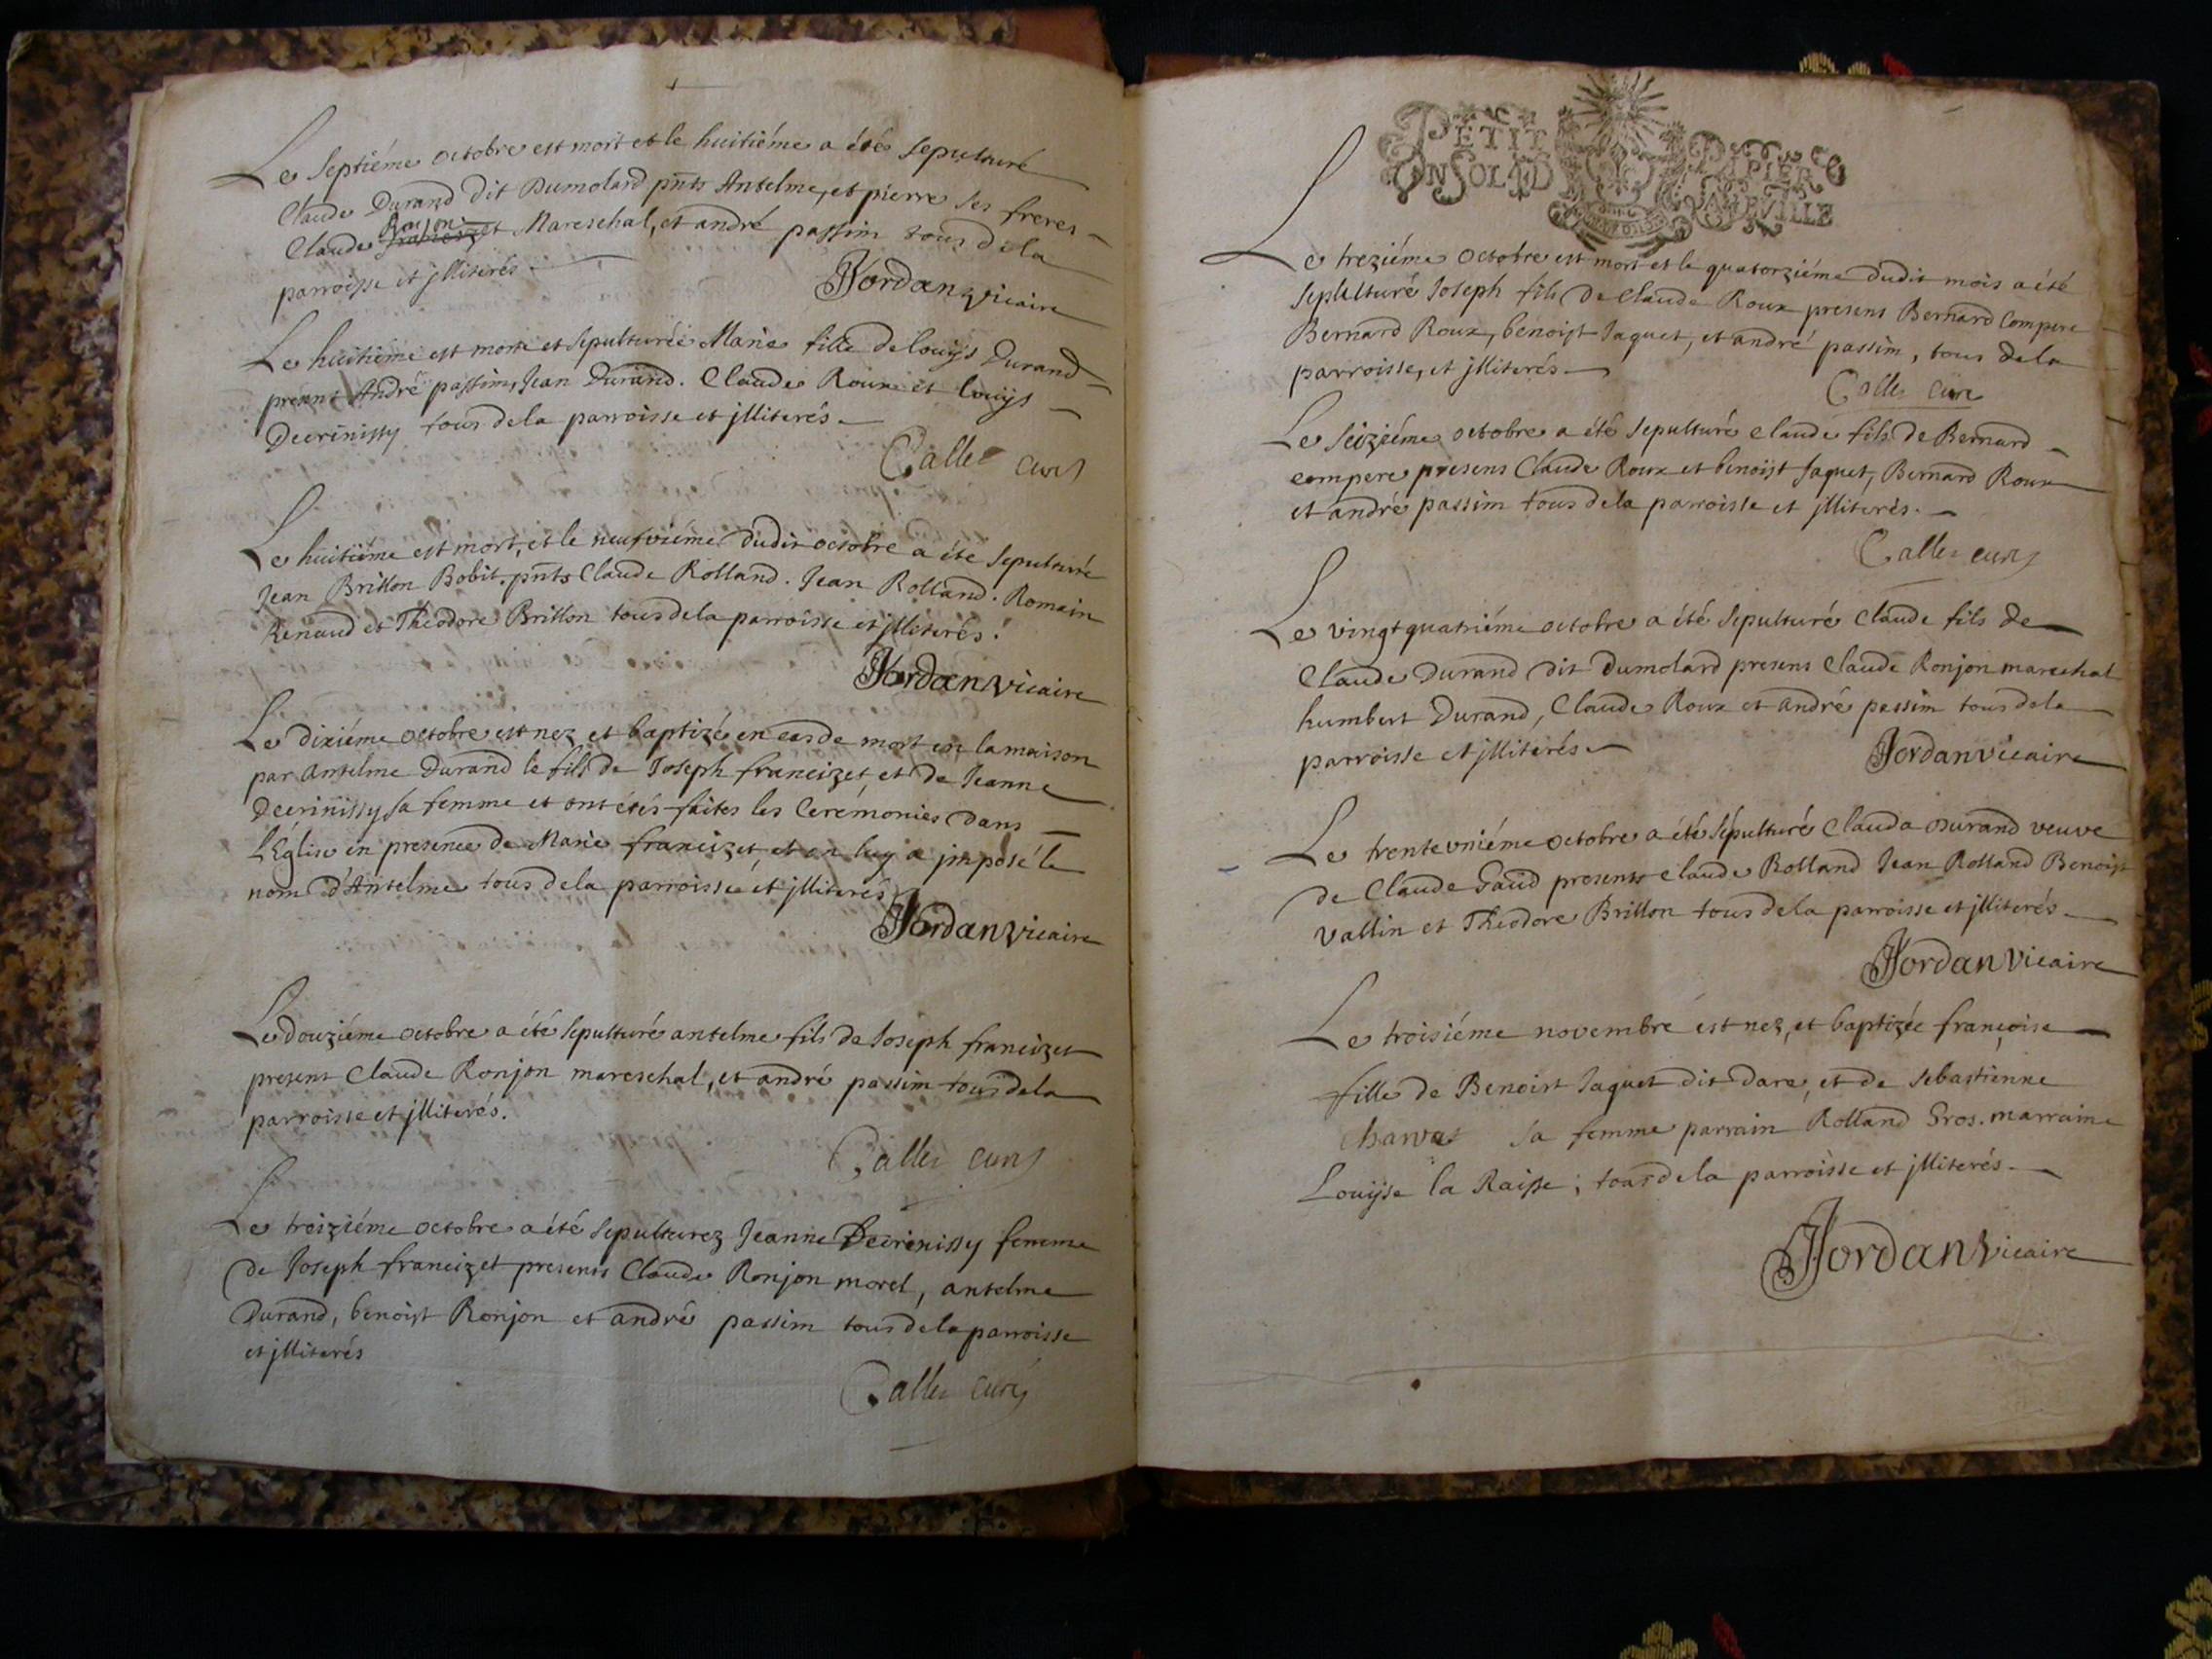 Le Septiéme octobre est mort et le huitiéme a étés sepulturé
Claude Durand dit Dumolard pnts Antelme, et pierre ses freres
Ronjon
Claude francizet Mareschal, et andré passim tous de la
parroisse et jlliterés
Jordan vicaire
Le huitiéme est morte et sepulturée Marie fille de louijs Durand
présent André passim, Jean Durand. Claude Roux et louijs
Decrinissy tous de la parroisse et jlliterés
Callet curé
Le huitiéme est mort, et le neufviéme dudit octobre a été sepulturé
Jean Brillon Bobit. pnts Claude Rolland. Jean Rolland. Romain
Renaud et Theodore Brillon tous de la parroisse et jlliterés.
Jordan vicaire
Le dixiéme octobre est nez et baptizé en cas de mort en la maison
par Antelme Durand le fils de Joseph francizet et de Jeanne
Decrinissy sa femme et ont étés faites les Cerémonies dans
L'Église en presence de Marie francizet, et on luy a jmposé le
nom d'Antelme tous de la parroisse et jlliterés
Jordan vicaire
Le douziéme octobre a été sepulturé antelme fils de Joseph francizet
present Claude Ronjon mareschal, et andré passim tous de la
parroisse et jlliterés.
Callet curé
Le treiziéme octobre a été sepulturez Jeanne Decrinissy femme
de Joseph francizet presents Claude Ronjon morel, antelme
Durand, benoist Ronjon et andré passim tous de la parroisse
et jlliterés
Callet curé
PETIT PAPIER
UN SOL 
Le treziéme octobre est mort et le quatorziéme dudit mois a été
sepulturé Joseph fils de Claude Roux presens Bernard Compere
Bernard Roux, benoist Jaquet, et andré passim, tous de la
parroisse, et jlliterés
Callet curé
Le seiziéme octobre a été sepulturé claude fils de Bernard
compere presens Claude Roux et benoist Jaquet, Bernard Roux
et andré passim tous de la parroisse et jlliterés.
Callet curé
Le vingt quatriéme octobre a été sepulturé Claude fils de
Claude Durand dit Dumolard presens Claude Ronjon mareschal
humbert Durand, Claude Roux et andré passim tous de la
parroisse et jlliterés
Jordan vicaire
Le trente vniéme octobre a été sépulturé Clauda Durand veuve
de Claude Gaud presents claude Rolland Jean Rolland Benoist
Vallin et Theodore Brillon tous de la parroisse et jlliterés
Jordan vicaire
Le troisiéme novembre est nez, et baptizée françoise
fille de Benoist Jaquet dit dare, et de sebastienne
Charvet sa femme parrain Rolland Gros. marraine
Louijse la Raisse; tous de la parroisse et jlliterés
Jordan vicaire